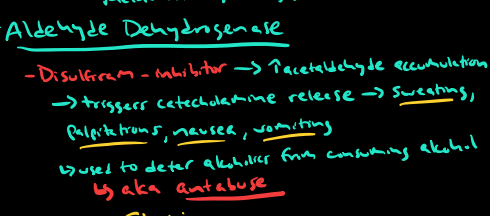 Aldehyde Dehydrogenase
- Disulfiram - inhibitor → ↑acetaldehyde accumulation
→ triggers catecholamine release → sweating,
palpitations, nausea, vomiting
↳ used to deter alcoholics from consuming alcohol
↳ aka antabuse